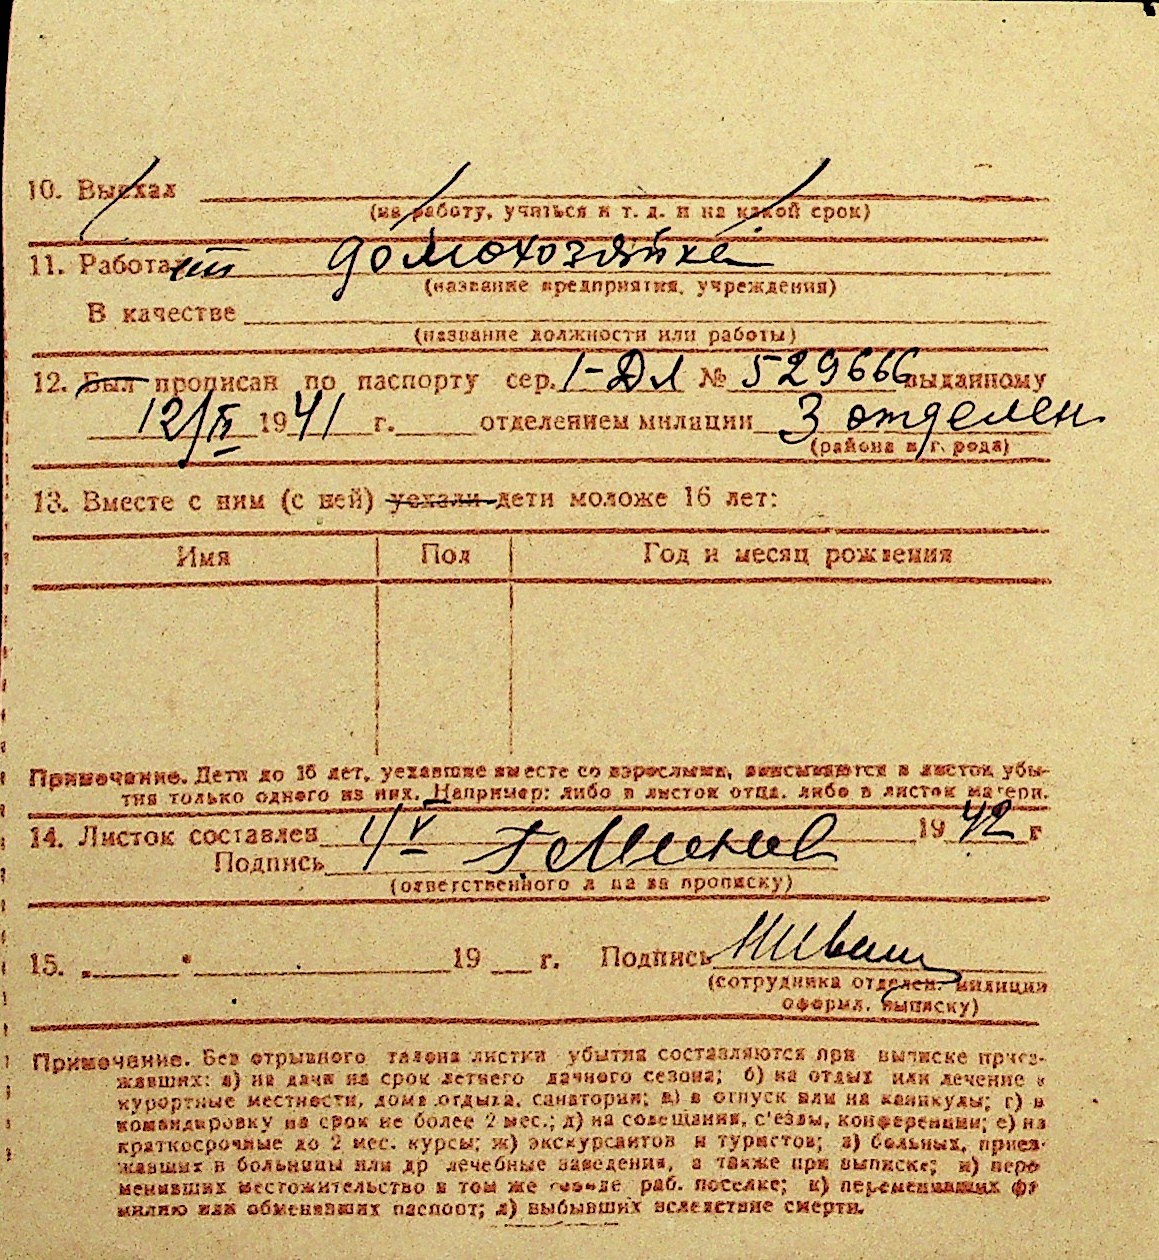 10. Выехал
(на работу, учиться и т. д. и на какой срок)
11. Работает домохозяйка
(название предприятия, учреждения)
В качестве
(название должности или работы)
12. Был прописан по паспорту сер. 1-ДЛ № 529666 выданному
12/IV 1941 г. отделением милиции 3 отделен
(района и г. рода)
13. Вместе с ним (с ней) уехали дети моложе 16 лет:
Имя Пол Год и месяц рождения
Примечание. Дети до 16 лет, уехавшие вместе со взрослыми, вписываются в листок убы-
тия только одного из них. Например: либо в листок отца, либо в листок матери.
14. Листок составлен 1/V 1942 г
Подпись
(ответственного л ца за прописку)
15. „ " 19 г. Подпись
(сотрудника отделен. милиции
оформл. выписку)
Примечание. Без отрывного талона листки убытия составляются при выписке приез-
жавших: а) на дачи на срок летнего дачного сезона; б) на отдых или лечение в
курортные местности, дома отдыха, санатории; в) в отпуск или на каникулы; г) в
командировку на срок не более 2 мес.; д) на совещания, с'езды, конференции; е) на
краткосрочные до 2 мес. курсы; ж) экскурсантов и туристов; з) больных, приез-
жавших в больницы или др лечебные заведения, а также при выписке; и) пере
менивших местожительство в том же городе раб. поселке; к) переменивших фа
милию или обменявших паспорт; л) выбывших вследствие смерти.